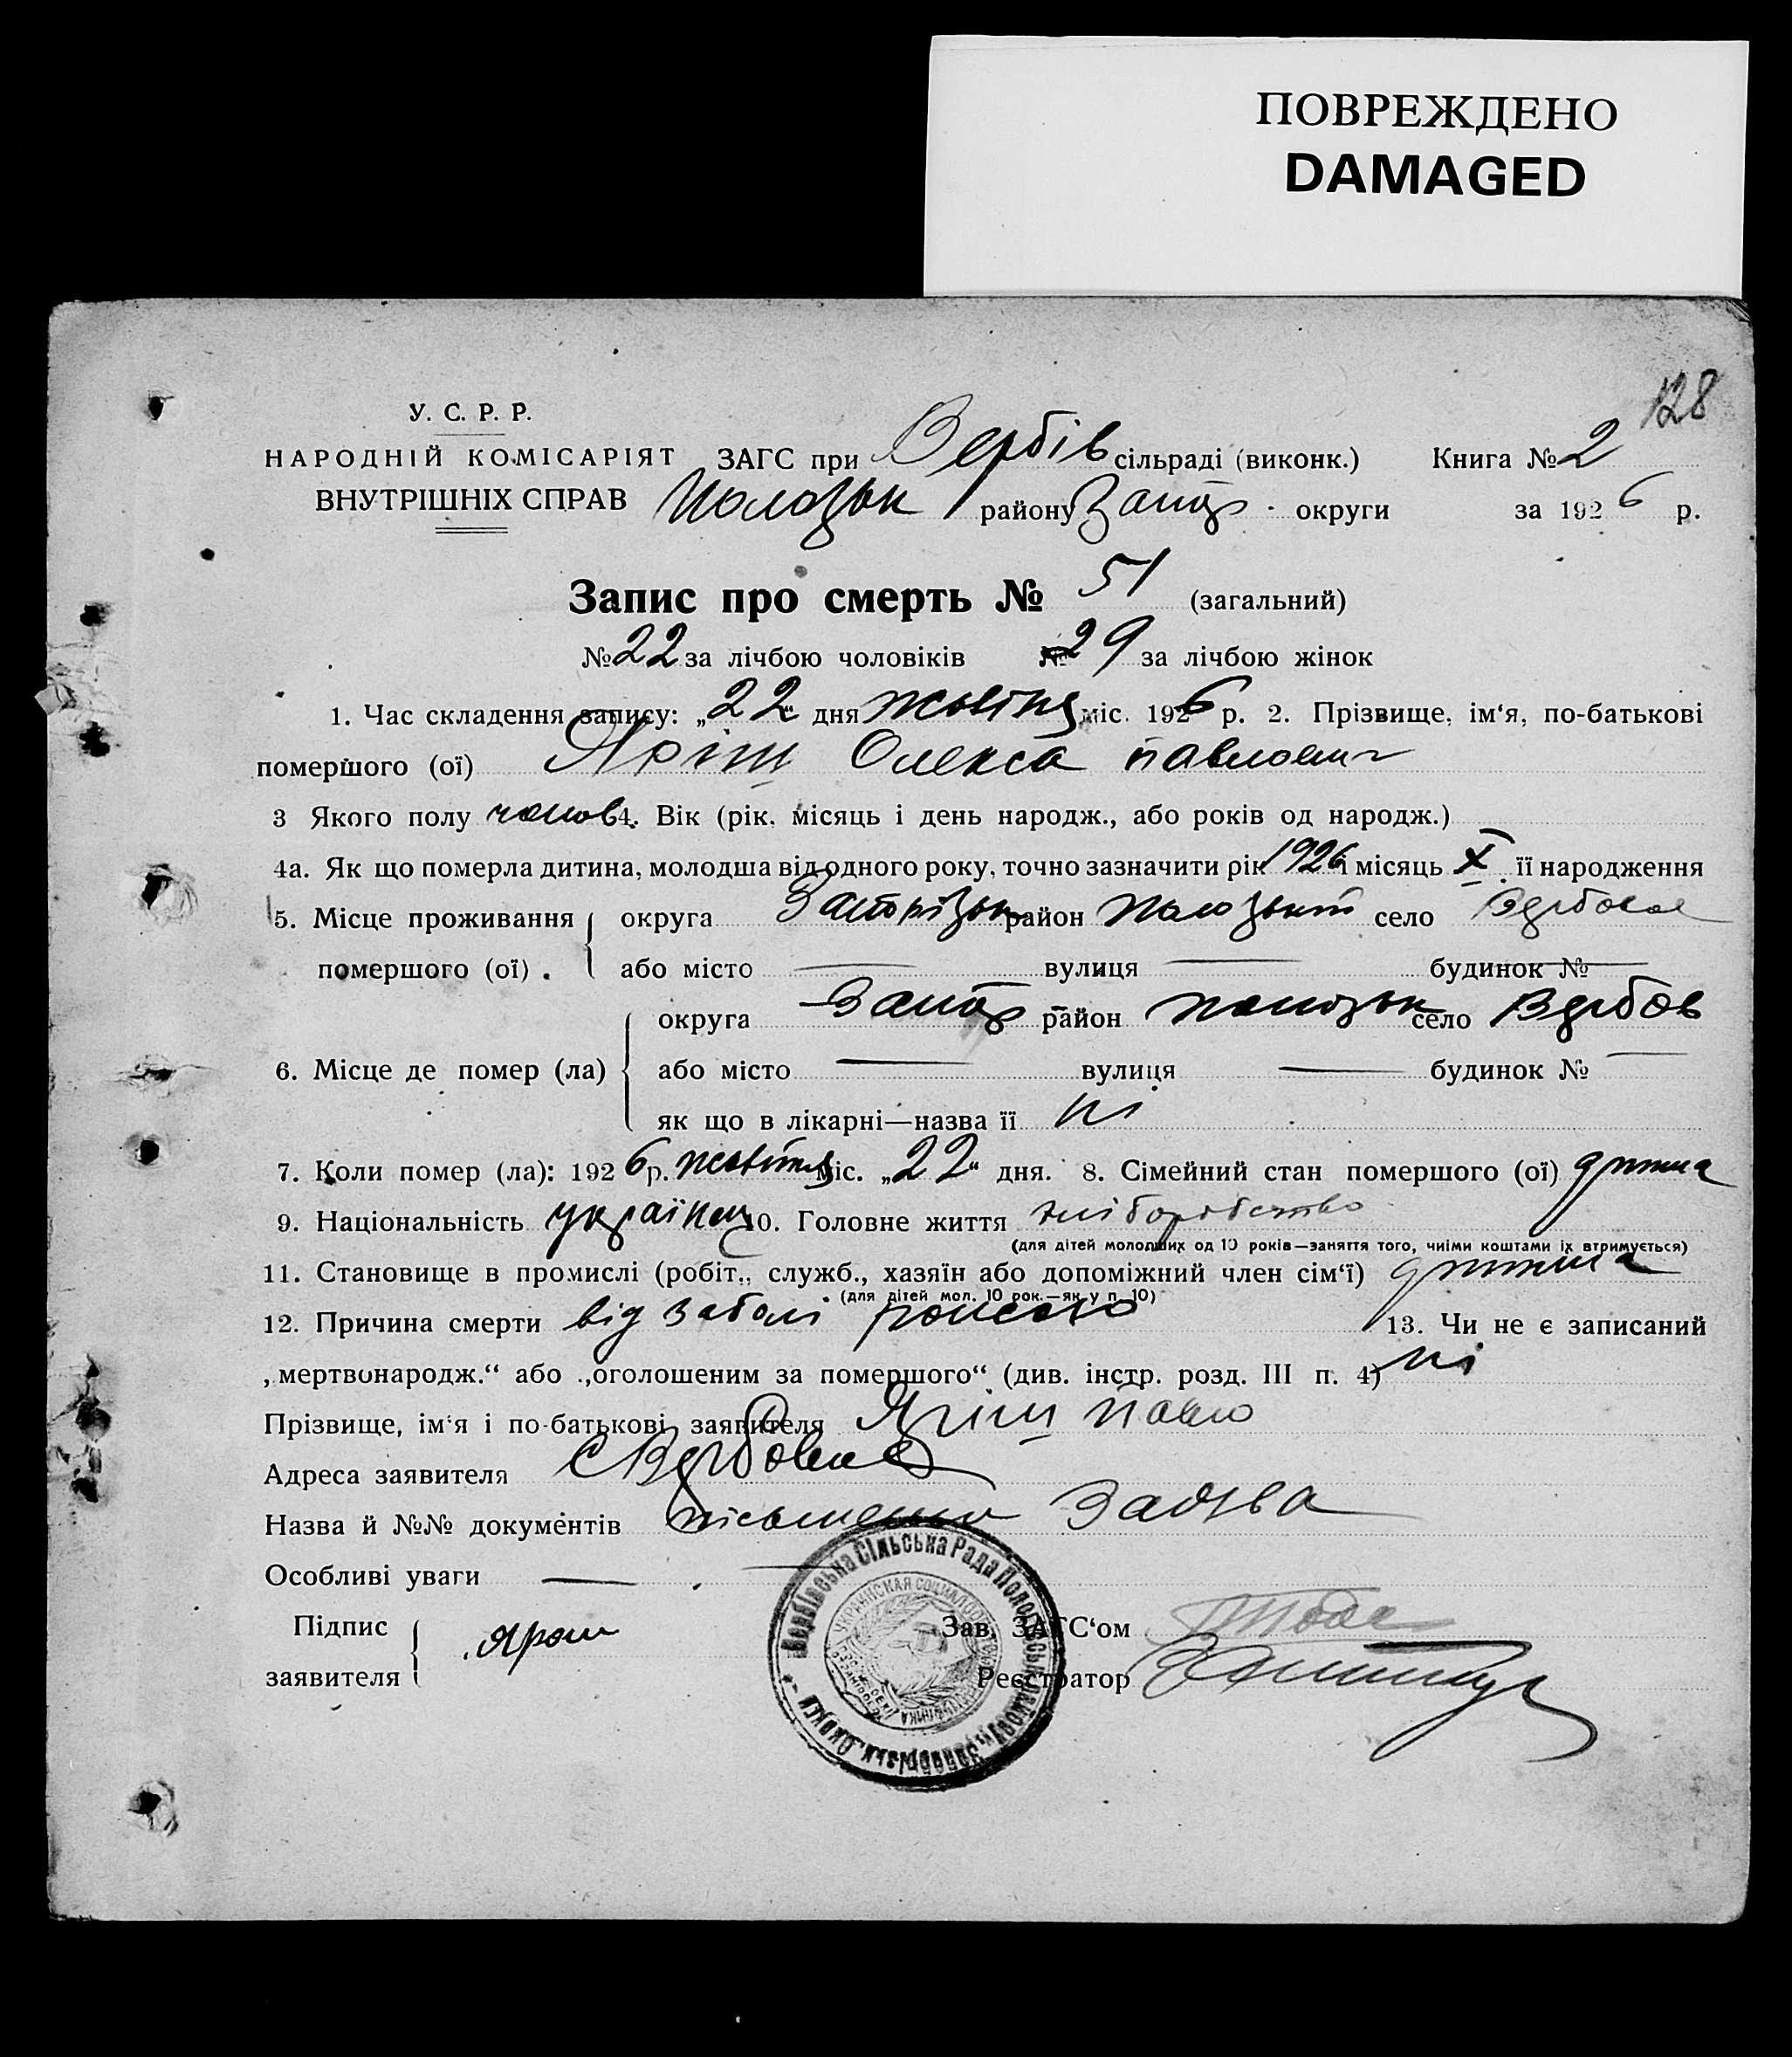 ПОВРЕЖДЕНО
DAMAGED
128
У. С. Р. Р.
НАРОДНІЙ КОМІСАРІЯТ ЗАГС при Вербів сільраді (виконк.) Книга № 2
ВНУТРІШНІХ СПРАВ Пологзьк району Запор. округи за 1926 р.
Запис про смерть № 51 (загальний)
№ 22 за лічбою чоловіків № 29 за лічбою жінок
1. Час складення запису: „22“ дня жовтня міс. 1926 р. 2. Прізвище, ім‘я, по-батькові
помершого (ої) Яріш Олекса Павлович
3 Якого полу чолов 4. Вік (рік, місяць і день народж., або років од народж.)
4а. Як що померла дитина, молодша від одного року, точно зазначити рік 1926 і місяць X її народження
5. Місце проживання округа район село
помершого (ої) . або місто — вулиця — будинок № —
округа Запор район село Вербов
6. Місце де помер (ла) або місто — вулиця — будинок № —
як що в лікарні—назва її ні
7. Коли помер (ла): 1926 р. жовтня міс. „22“ дня. 8. Сімейний стан помершого (ої) дитина
9. Національність українец 10. Головне життя хліборобство
(для дітей молодших од 10 років—заняття того, чиїми коштами їх втримується)
11. Становище в промислі (робіт., служб., хазяїн або допоміжний член сім‘ї) дитина
(для дітей мол. 10 рок.—як у п. 10)
12. Причина смерти від 13. Чи не є записаний
„мертвонародж.“ або „оголошеним за помершого“ (див. інстр. розд. III п. 4) ні
Прізвище, ім‘я і по-батькові заявителя Яріш Павло
Адреса заявителя с Вербове
Назва й №№ документів письменна заява
Особливі уваги —
Підпис заявителя Яріш
Зав. ЗАГС‘ом
Реєстратор
Вербівська Сільська Рада Пологівськ. району, Запоріжськ. округи
УКРАИНСКАЯ СОЦИАЛ